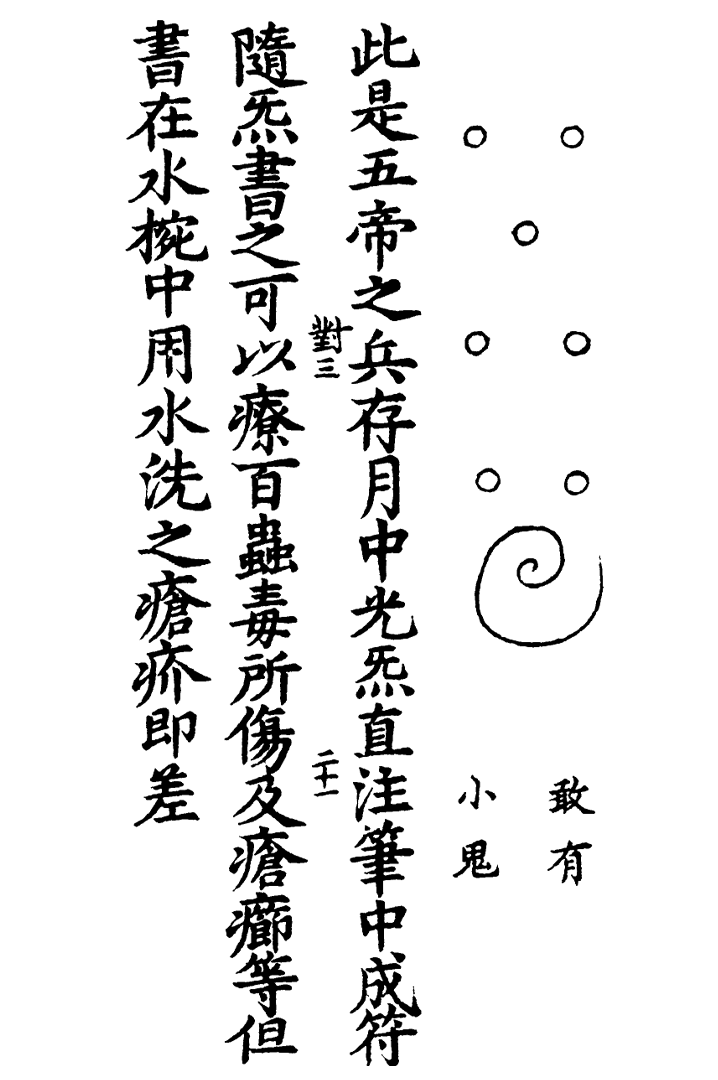 敢有
小鬼
此是五帝之兵存月中光炁直注筆中成符
對三
二十一
隨炁書之可以療百蟲毒所傷及瘡癤等但
書在水椀中用水洗之瘡疥即差